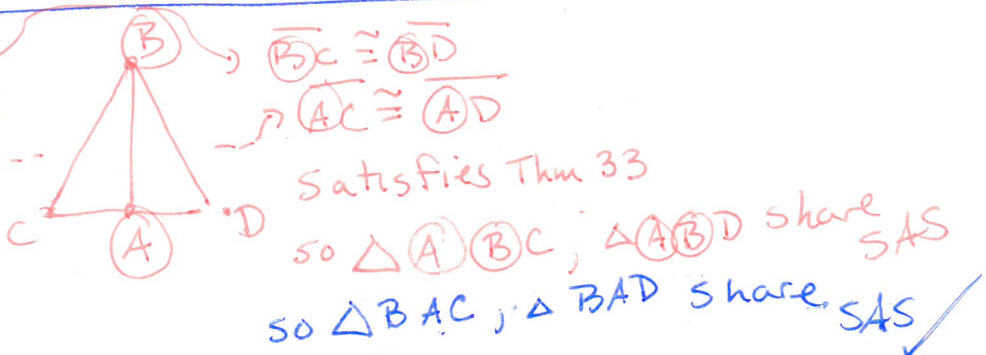 B
BC ≅ BD
AC ≅ AD
satisfies Thm 33
C A D
so △ABC, △ABD share SAS
so △BAC, △BAD share SAS ✓